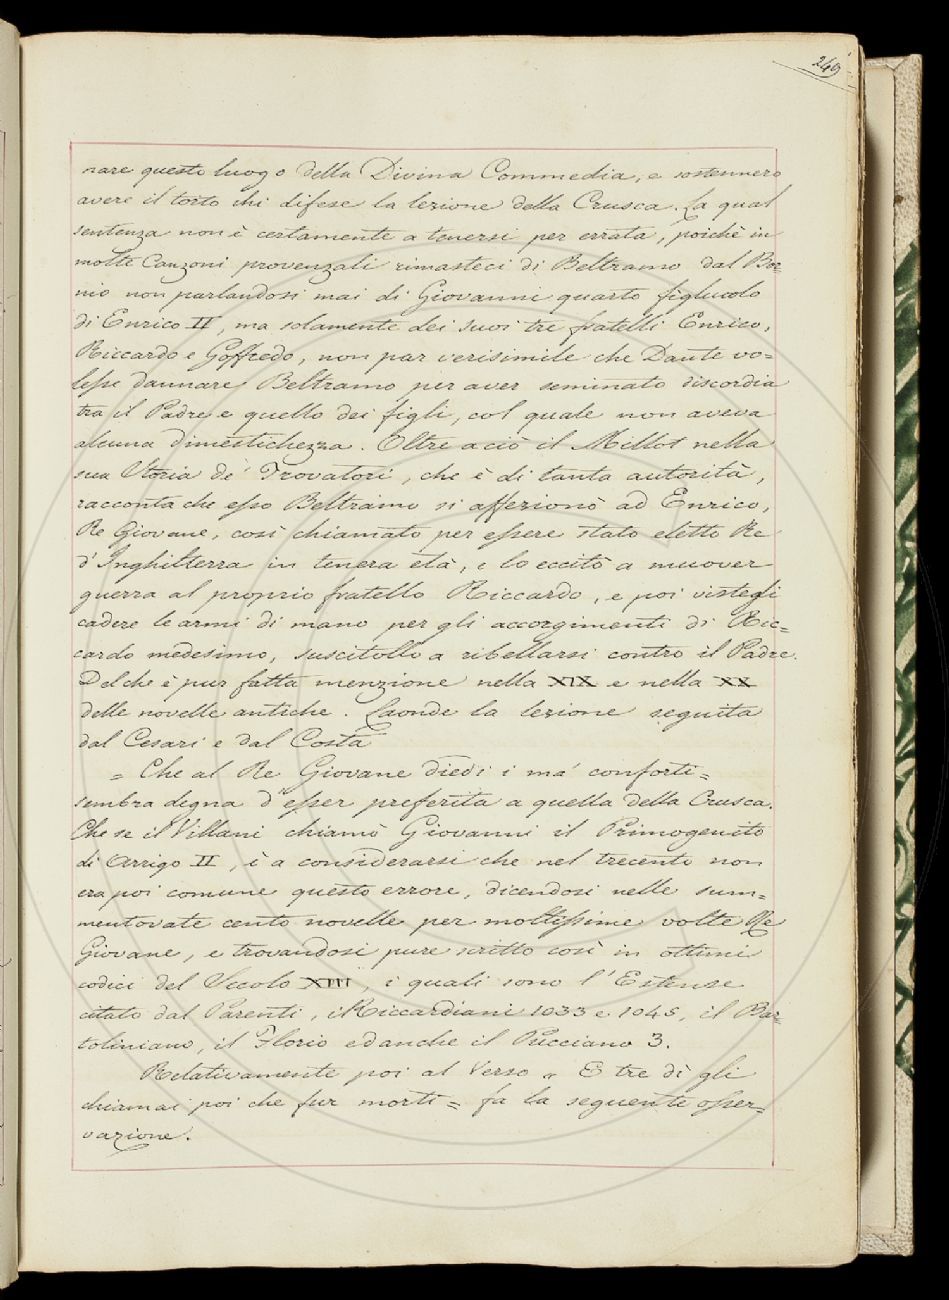 249
nare questo luogo della Divina Commedia, e sostennero
avere il torto chi difese la lezione della Crusca. La qual
sentenza non è certamente a tenersi per errata, poichè in
molte Canzoni provenzali rimasteci di Beltramo dal Bor=
nio non parlandosi mai di Giovanni quarto figliuolo
di Enrico II, ma solamente dei suoi tre fratelli Enrico,
Riccardo e Goffredo, non par verisimile che Dante vo=
lesse dannare Beltramo per aver seminato discordia
tra il Padre e quello dei figli, col quale non aveva
alcuna dimestichezza. Oltre a ciò il Millot nella
sua Storia de' Trovatori, che è di tanta autorità,
racconta che esso Beltramo si affezionò ad Enrico,
Re Giovane, così chiamato per essere stato eletto Re
d'Inghilterra in tenera età, e lo eccitò a muover
guerra al proprio fratello Riccardo, e poi vistegli
cadere le armi di mano per gli accorgimenti di Ric=
cardo medesimo, suscitollo a ribellarsi contro il Padre.
Del che è pur fatta menzione nella XIX e nella XX
delle novelle antiche. Laonde la lezione seguita
dal Cesari e dal Costa
= Che al Re Giovane diedi i ma' conforti =
sembra degna d'esser preferita a quella della Crusca.
Che se il Villani chiamò Giovanni il Primogenito
di Arrigo II, è a considerarsi che nel trecento non
era poi comune questo errore, dicendosi nelle sum=
mentovate cento novelle per moltissime volte Re
Giovane, e trovandosi pure scritto così in ottimi
codici del Secolo XIII, i quali sono l'Estense
citato dal Parenti, i Riccardiani 1033 e 1045, il Bar=
toliniano, il Florio ed anche il Pucciano 3.
Relativamente poi al Verso = E tre dì gli
chiamai poi che fur morti = fa la seguente osser=
vazione.